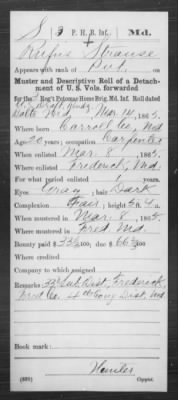 S 3 P. H. B. Inf. Md.
Rufus Strause
Appears with rank of Pvt. on
Muster and Descriptive Roll of a Detach-
ment of U. S. Vols. forwarded
for the 3 Reg't Potomac Home Brig. Md. Inf. Roll dated
Md., Mar 14, 1865.
Where born Carroll Co, Md
Age 20 years; occupation Carpenter
When enlisted Mar. 8, 1865.
Where enlisted Frederick, Md.
For what period enlisted 1 years.
Eyes Gray; hair Dark
Complexion Fair; height 5 ft. 4 in.
When mustered in Mar. 8, 1865.
Where mustered in Fred Md
Bounty paid $ 33 00/100; due $ 66 00/100
Where credited
Company to which assigned
Remarks: Sub Dist, Frederick,
Fred Co, 4th Cong Dist, Md.
Book mark:
(339) Copyist.